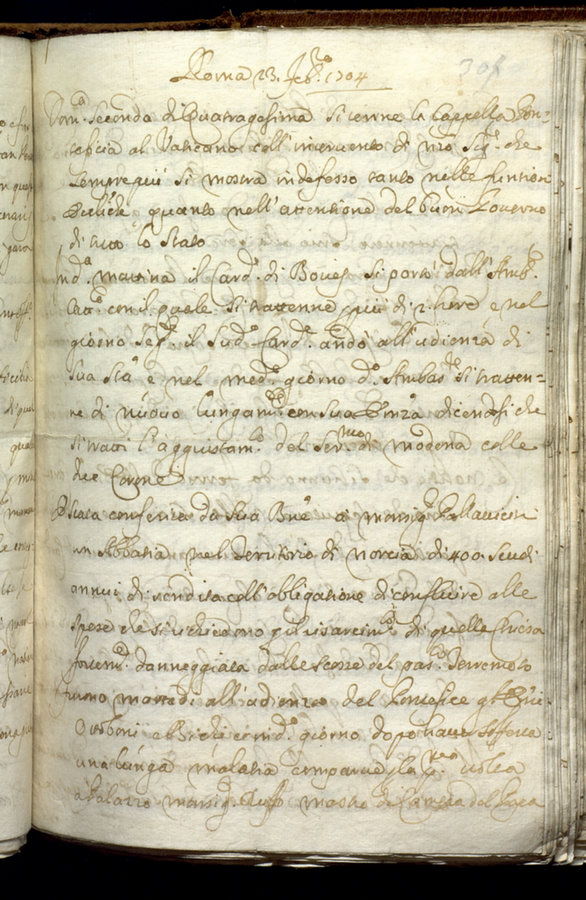 Roma 23. Feb.ro 1704
305
Dom.ca seconda di Quatragesima si tenne la Cappella Pon-
teficia al Vaticano coll'intervento di N'ro Sig.re che
sempre più si mostra indefesso tanto nelle funtioni
publiche quanto nell'attentione del buon Governo
di tutto lo Stato
In d.a mattina il Card.l di si portò dall'Amb.r
Catt.o con il quale si trattenne più di 2. hore e nel
giorno seg.te il Sud.o Card.l andò all'udienza di
Sua S.tà e nel med.o giorno d.o Ambas.re si tratten-
ne di nuovo lungam.te con sua Em.za dicendosi che
si tratti l'aggiustam.to del Ser.mo di Modena colle
due Corone
È stata conferita da Sua B.ne a Monsig.r Pallavicini
un Abbatia nel Territorio di Norcia di 400. Scudi
annui di rendita coll'obligatione di confluire alle
spese che si richiedono pel risarcim.to di quelle Chiesa
fortem.te danneggiata dalle scosse del pas.to Terremoto
Furono martedì all'adienza del Pontefice gl'Em.i
Ottoboni e Bichi e in d.o giorno dopo haver sofferta
una lunga malatia comparve p la p.ma volta
a Palazzo Monsig.r Ruffo Mastro di Camera del Papa